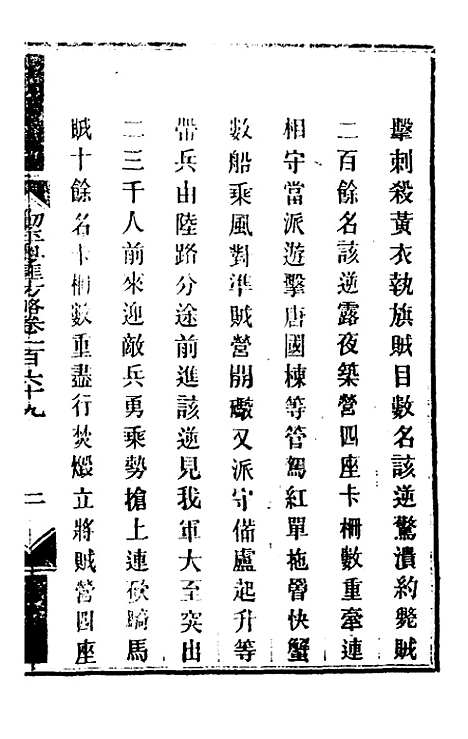 擊刺殺黃衣執旗賊目數名該逆驚潰約斃賊
二百餘名該逆露夜築營四座卡柵數重牽連
相守當派遊擊唐國棟等管駕紅單拖罾快蟹
數船乘風對準賊營開礮又派守備盧起升等
帶兵由陸路分途前進該逆見我軍大至突出
二三千人前來迎敵兵勇乘勢搶上連砍騎馬
賊十餘名卡柵數重盡行焚燬立將賊營四座
方略卷一百六十九
二